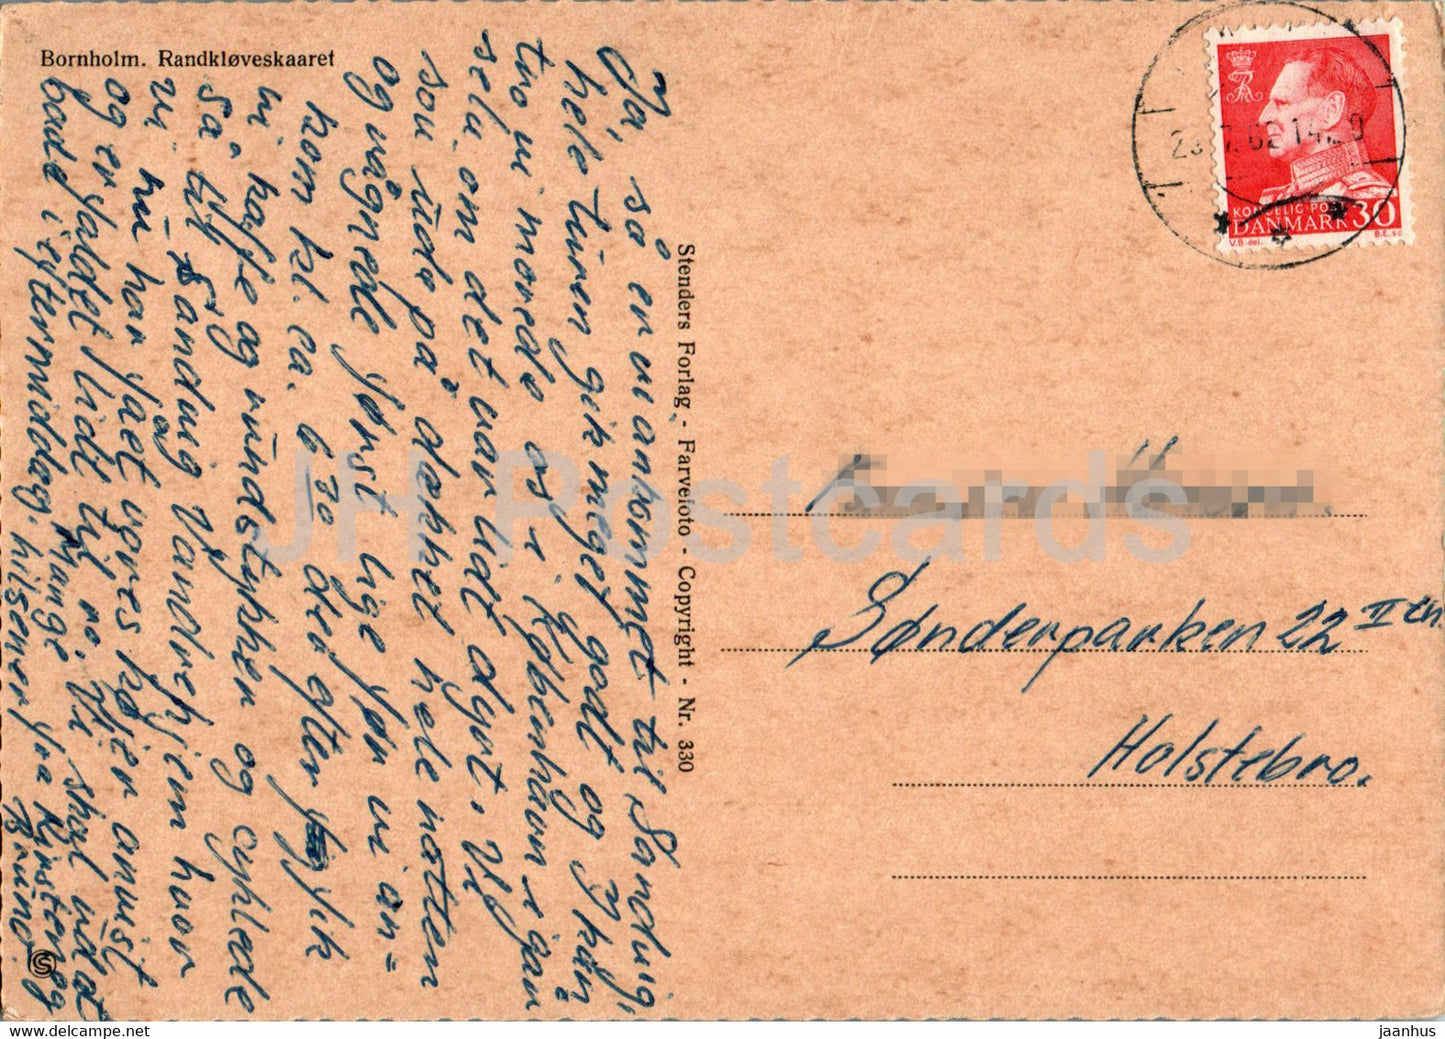 Bornholm. Randkløveskaaret
Ja, så er vi ankommet til Sandvig,
hele turen gik meget godt og I kan
tro vi morede os i København engang
selv om det var lidt dyrt. Vi
sov ude på dækket hele natten
og vågnede først lige før vi an=
kom kl. ca. 6 30 derefter fik
vi kaffe og rundstykker og cyklede
så til Sandvig Vandrehjem hvor
vi nu har fået vores køjer anvist
og er faldet lidt til ro. Vi skal ud at
bade i eftermiddag. Mange
hilsner fra Kirsten og
Bruno.
Stenders Forlag - Farvefoto - Copyright - Nr. 330
S
KONGELIG POST
DANMARK 30
V.B. del. B.E. sc
62 14
Sønderparken 22 II th.
Holstebro.
JH Postcards
delcampe.net
jaanhus